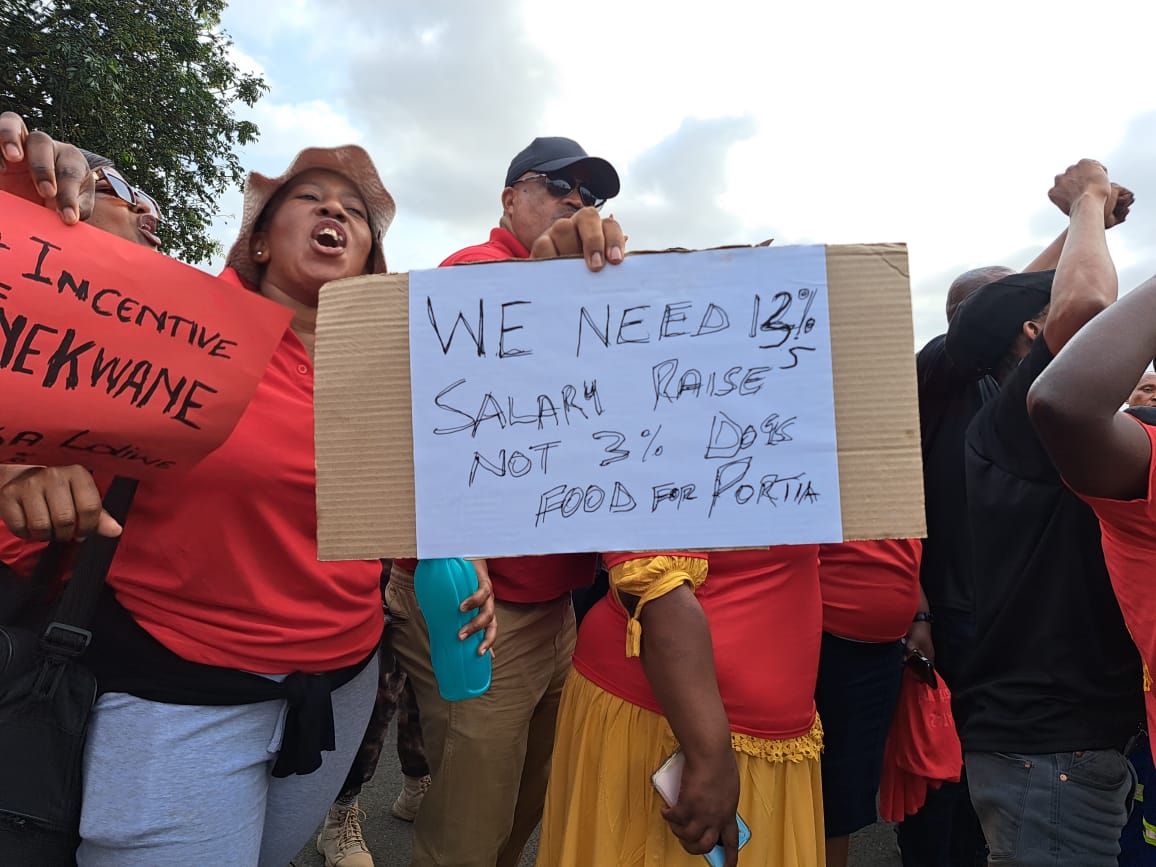 INCENTIVE
YEKWANE
WE NEED 12%
5
SALARY RAISE
NOT 3% DOGS
FOOD FOR PORTIA